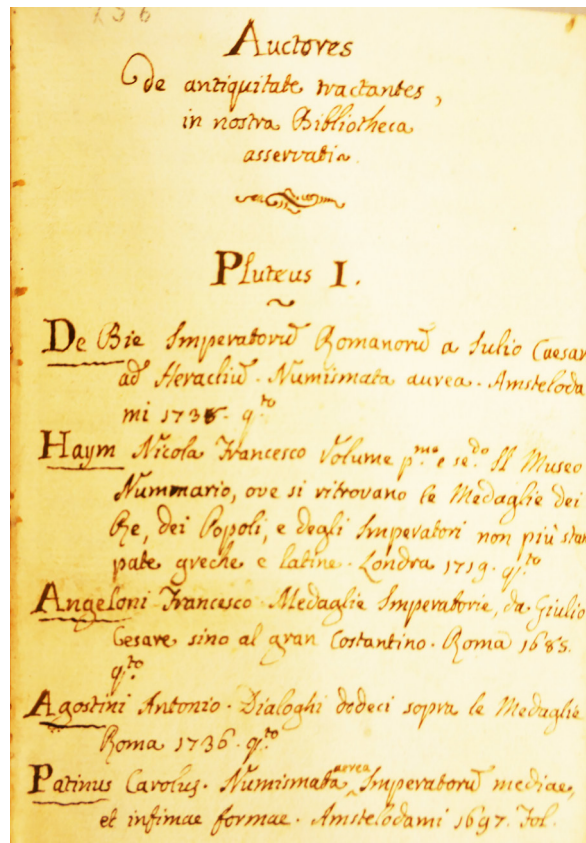 136
Auctores
de antiquitate tractantes,
in nostra Bibliotheca
asservati.
Pluteus I.
De Bie Imperatorū Romanorū a Julio Caesar
ad Heracliū. Numismata aurea. Amsteloda
mi 1738. 4.to
Haym Nicola Francesco Volume p.mo e se.do Il Museo
Nummario, ove si ritrovano le Medaglie dei
Re, dei Popoli, e degli Imperatori non più stam
pate greche e latine. Londra 1719. 4.to
Angeloni Francesco. Medaglie Imperatorie, da Giulio
Cesare sino al gran Costantino. Roma 1685.
4.to
Agostini Antonio. Dialoghi dedeci sopra le Medaglie
Roma 1736. 4.to
Patinus Carolus. Numismata aurea Imperatorū mediae,
et infimae formae. Amstelodami 1697. Fol.